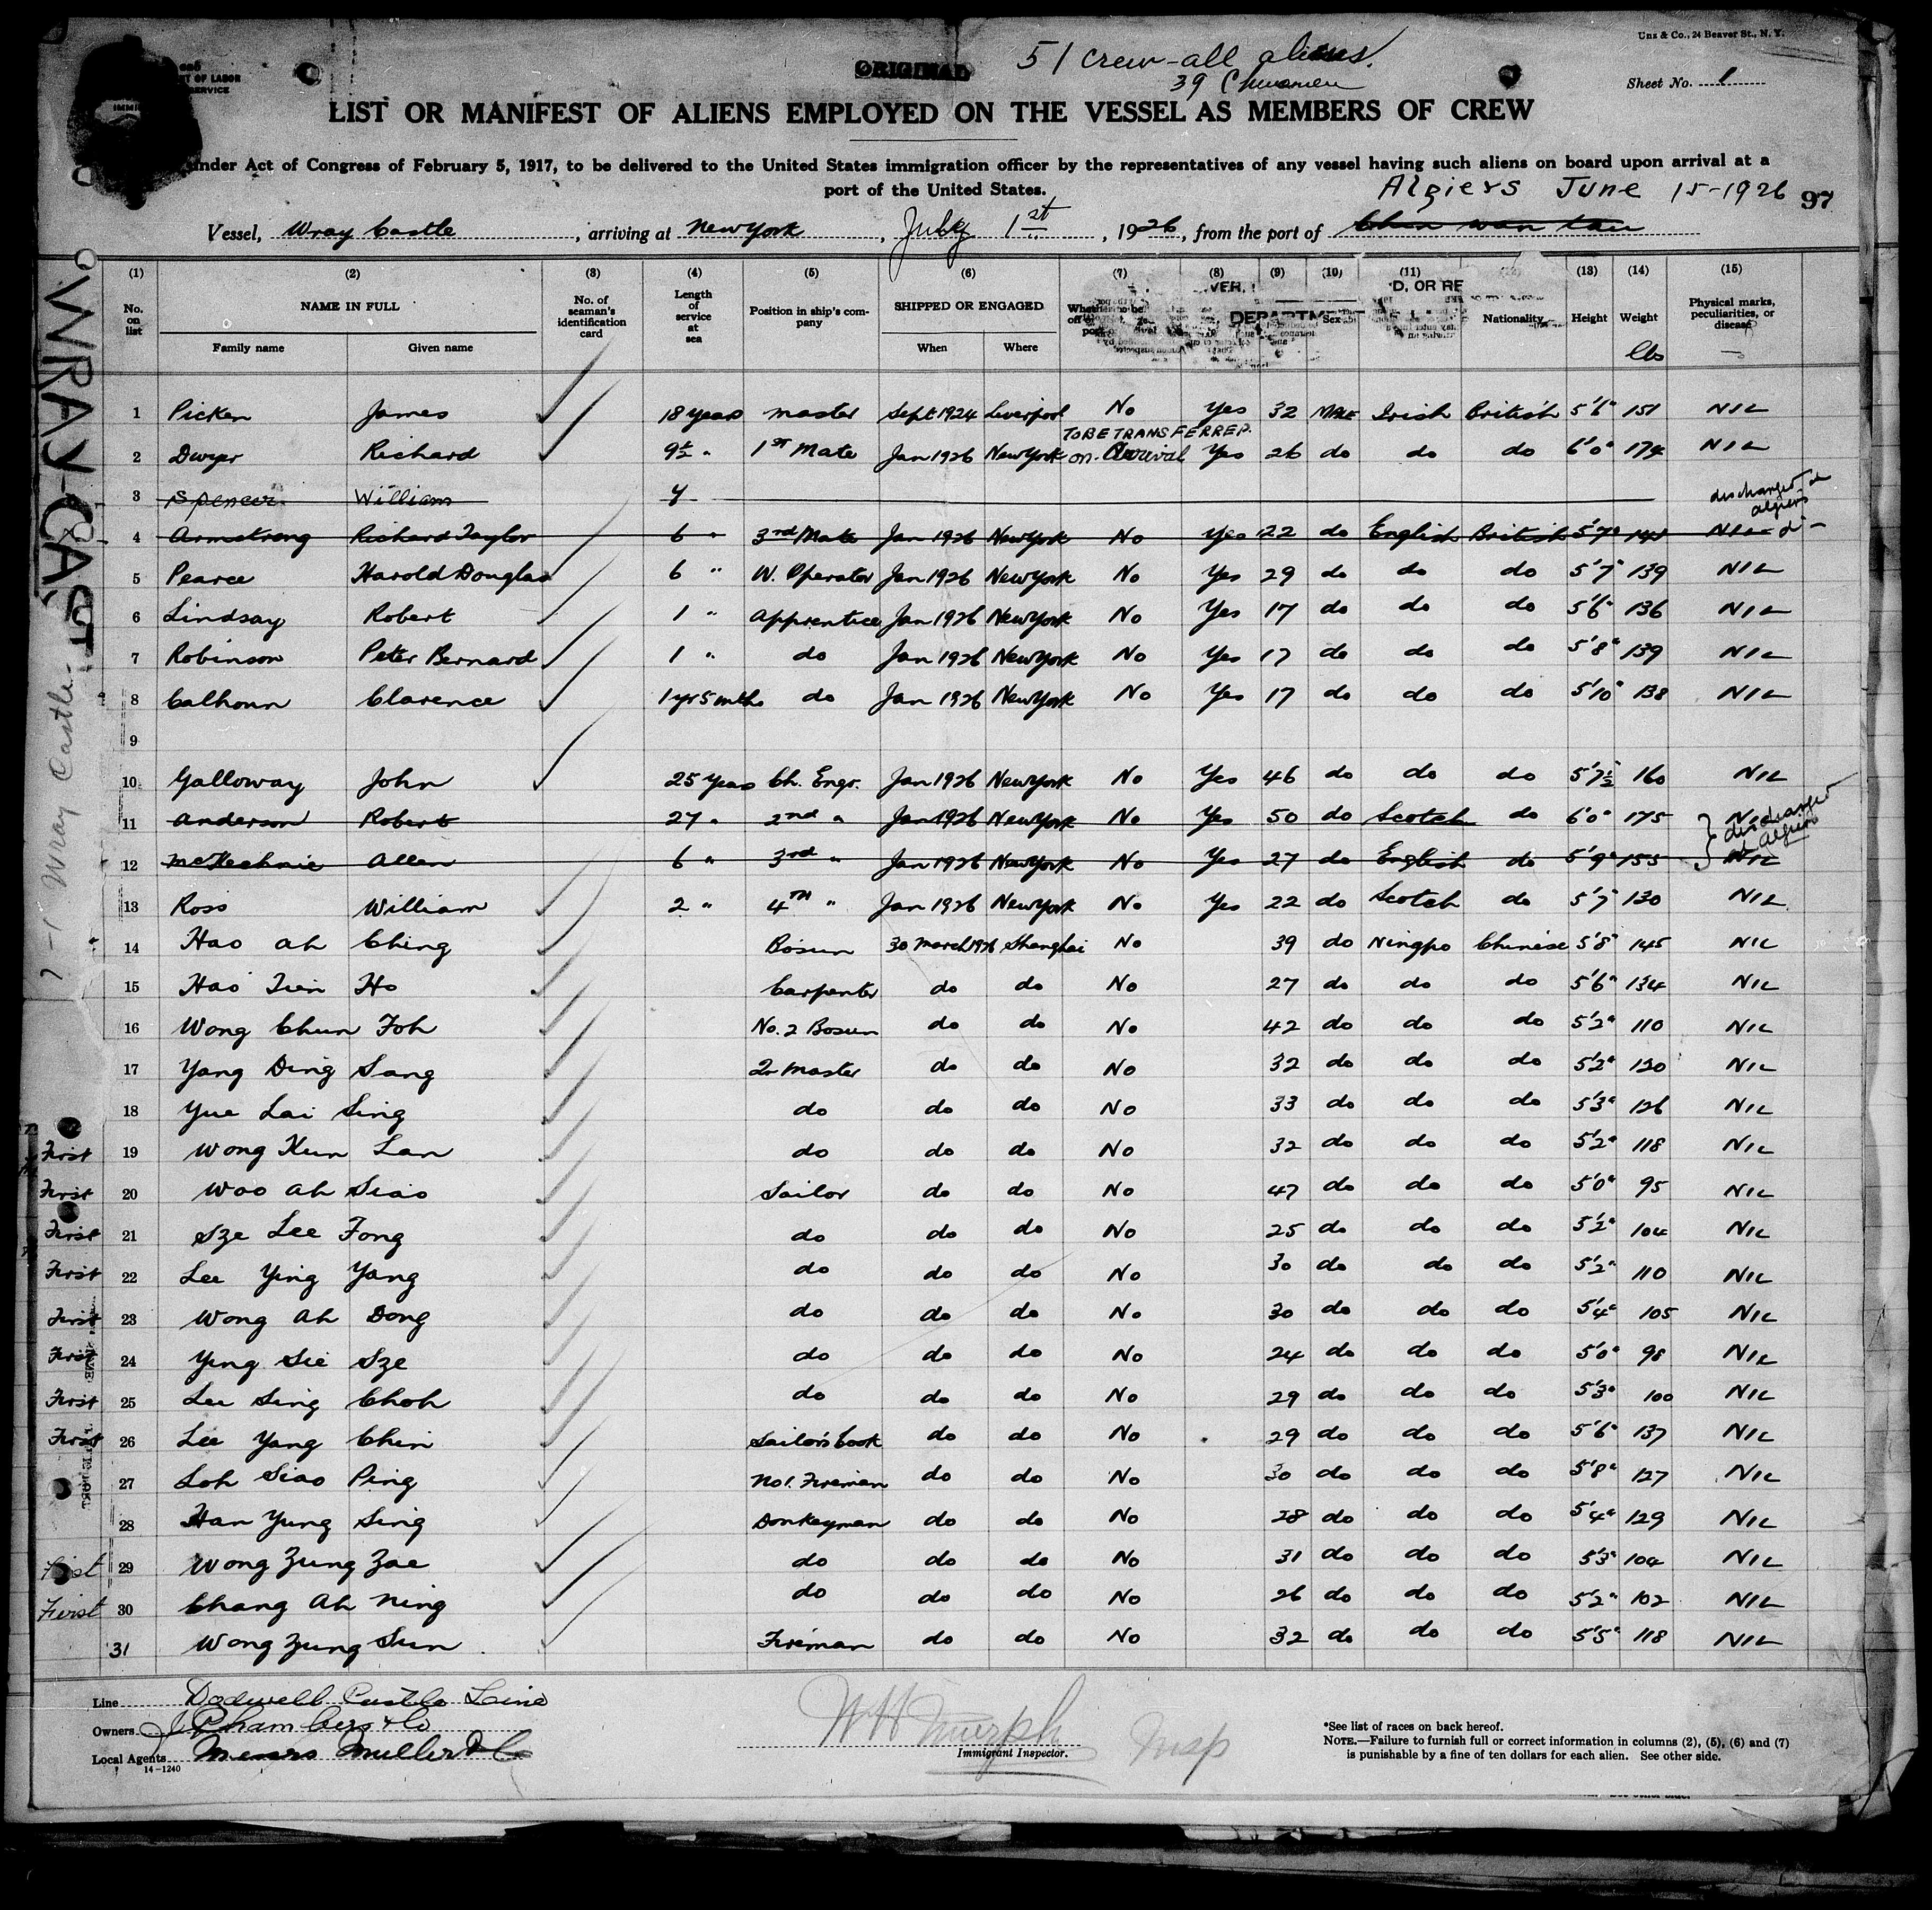 Uns & Co., 24 Beaver St., N. Y.
ORIGINAL
51 crew-all aliens.
39 Chinamen
Sheet No. 1
T OF LABOR
SERVICE
LIST OR MANIFEST OF ALIENS EMPLOYED ON THE VESSEL AS MEMBERS OF CREW
under Act of Congress of February 5, 1917, to be delivered to the United States immigration officer by the representatives of any vessel having such aliens on board upon arrival at a
port of the United States.
Algiers June 15-1926 97
Vessel, Wray Castle, arriving at New York, July 1st, 1926, from the port of Chin wan tau
WRAY-CAST
Wray Castle
(1) (2) (3) (4) (5) (6) (7) (8) (9) (10) (11) (12) (13) (14) (15)
No. on list NAME IN FULL No. of seaman's identification card Length of service at sea Position in ship's company SHIPPED OR ENGAGED Sex Nationality Height Weight Physical marks, peculiarities, or disease
Family name Given name When Where lbs
1 Picken James 18 years master Sept 1924 Liverpool No Yes 32 Male Irish British 5'6" 151 NIL
TO BE TRANSFERRED.
2 Dwyer Richard 9½ " 1st Mate Jan 1926 New York on Arrival Yes 26 do do do 6'0" 174 NIL
3 Spencer William 4 discharged at Algiers
4 Armstrong Richard Taylor 6 " 3rd Mate Jan 1926 New York No Yes 22 do English British 5'7" 141 NIL do
5 Pearce Harold Douglas 6 " W. Operator Jan 1926 New York No Yes 29 do do do 5'7" 139 NIL
6 Lindsay Robert 1 " Apprentice Jan 1926 New York No Yes 17 do do do 5'6" 136 NIL
7 Robinson Peter Bernard 1 " do Jan 1926 New York No Yes 17 do do do 5'8" 139 NIL
8 Calhoun Clarence 1 yr 5 mths do Jan 1926 New York No Yes 17 do do do 5'10" 138 NIL
9
10 Galloway John 25 Years Ch. Engr. Jan 1926 New York No Yes 46 do do do 5'7½ 160 NIL
11 Anderson Robert 27 " 2nd " Jan 1926 New York No Yes 50 do Scotch do 6'0" 175 NIL
discharged at Algiers
12 McKechnie Allan 6 " 3rd " Jan 1926 New York No Yes 27 do English do 5'9" 155 NIL
13 Ross William 2 " 4TH " Jan 1926 New York No Yes 22 do Scotch do 5'7" 130 NIL
14 Hao ah Ching Bosun 30 March 1926 Shanghai No 39 do Ningpo Chinese 5'8" 145 NIL
15 Hao Tien Ho Carpenter do do No 27 do do do 5'6" 134 NIL
16 Wong Chun Foh No. 2 Bosun do do No 42 do do do 5'2" 110 NIL
17 Yang Ding Sang 2r master do do No 32 do do do 5'2" 120 NIL
18 Yue Lai Sing do do do No 33 do do do 5'3" 126 NIL
First 19 Wong Kun Lan do do do No 32 do do do 5'2" 118 NIL
First 20 Woo ah Siao Sailor do do No 47 do do do 5'0" 95 NIL
First 21 Sze Lee Fong do do do No 25 do do do 5'2" 104 NIL
First 22 Lee Ying Yang do do do No 30 do do do 5'2" 110 NIL
First 23 Wong Ah Dong do do do No 30 do do do 5'4" 105 NIL
First 24 Ying Sie Sze do do do No 24 do do do 5'0" 98 NIL
First 25 Lee Sing Choh do do do No 29 do do do 5'3" 100 NIL
First 26 Lee Yang Chin Sailor's Cook do do No 29 do do do 5'6" 137 NIL
27 Loh Siao Ping No 1. Fireman do do No 30 do do do 5'8" 127 NIL
28 Han Yung Sing Donkeyman do do No 28 do do do 5'4" 129 NIL
First 29 Wong Zung Zae do do do No 31 do do do 5'3" 104 NIL
First 30 Chang Ah Ning do do do No 26 do do do 5'2" 102 NIL
31 Wong Zung Sun Fireman do do No 32 do do do 5'5" 118 NIL
Line Dodwell Castle Line
Owners J Chambers & Co
Local Agents Messrs Muller & Co
14-1240
W H Murph Insp
Immigrant Inspector.
*See list of races on back hereof.
NOTE.—Failure to furnish full or correct information in columns (2), (5), (6) and (7)
is punishable by a fine of ten dollars for each alien. See other side.